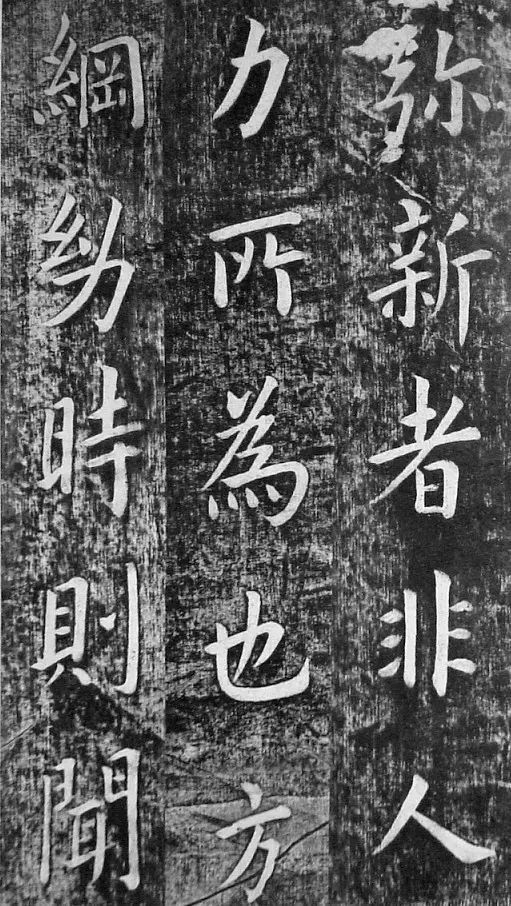 弥新者非人
力所為也方
綱幼時則聞